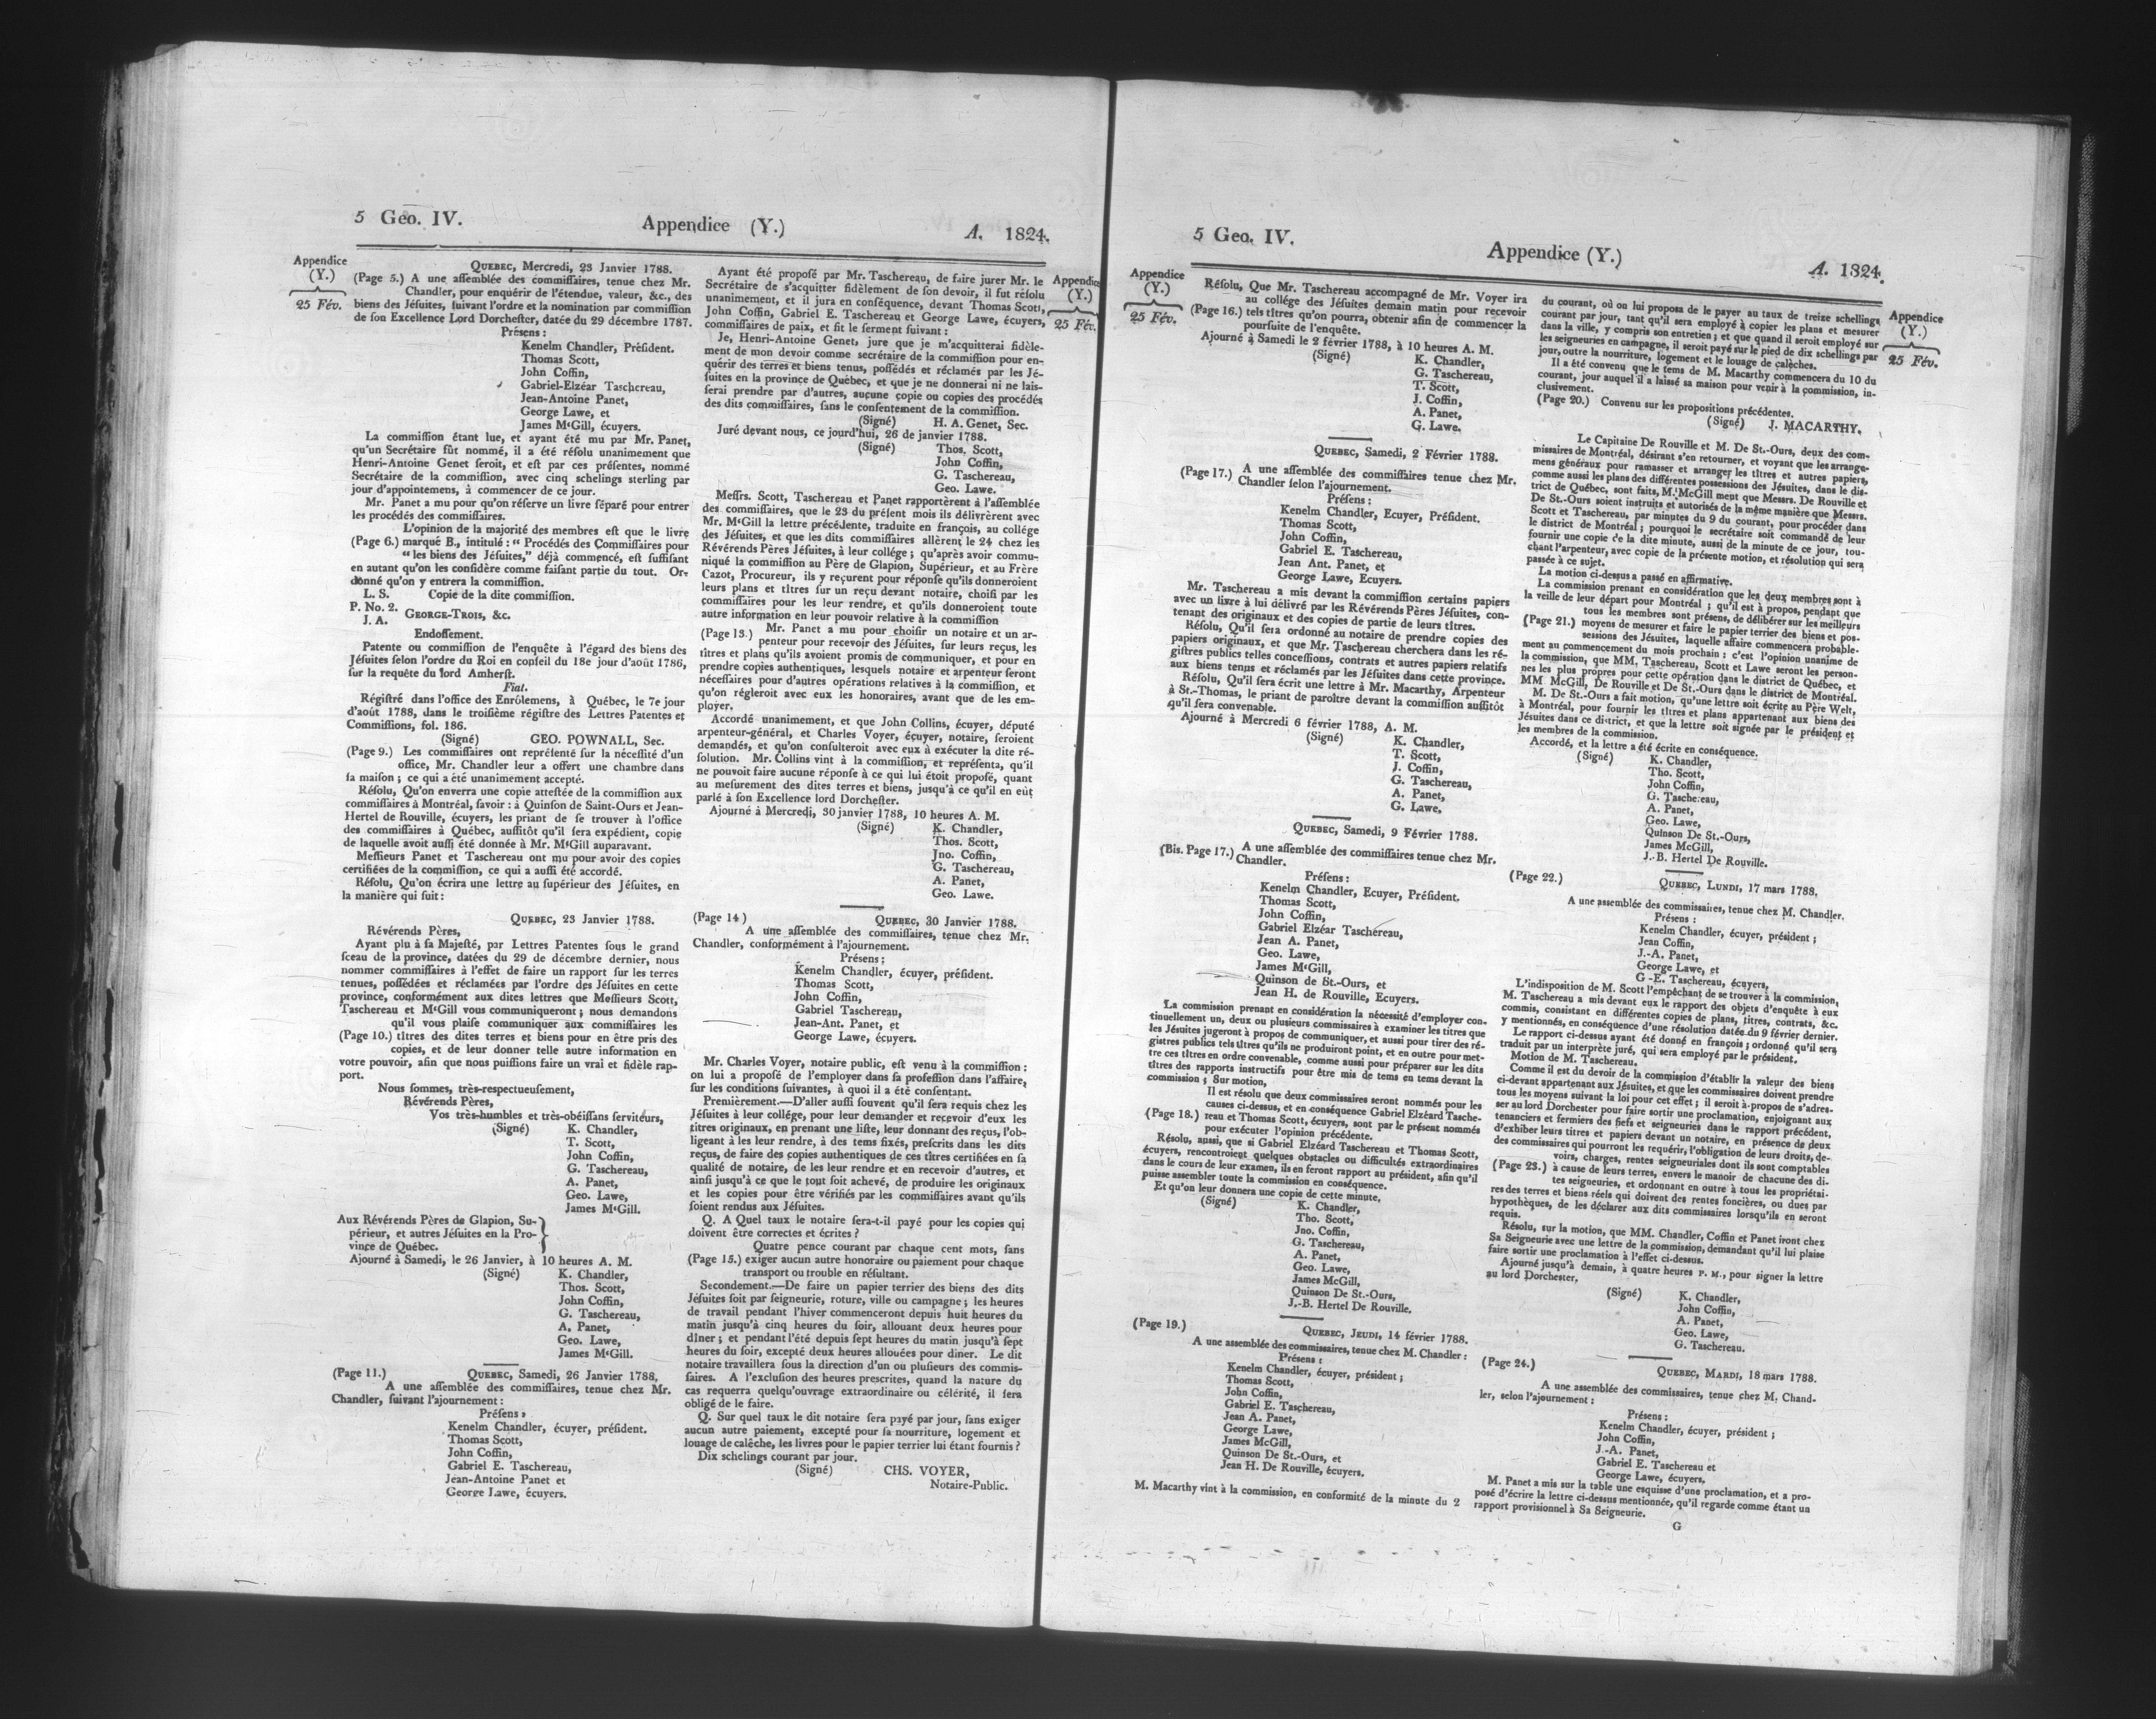 5 Geo. IV.
Appendice (Y.)
A. 1824.
Appendice
(Y.)
25 Fév.
QUEBEC, Mercredi, 23 Janvier 1788.
(Page 5.) A une aſſemblée des commiſſaires, tenue chez Mr.
Chandler, pour enquérir de l'étendue, valeur, &c., des
biens des Jéſuites, ſuivant l'ordre et la nomination par commiſſion
de ſon Excellence Lord Dorcheſter, datée du 29 décembre 1787.
Préſens :
Kenelm Chandler, Préſident.
Thomas Scott,
John Coffin,
Gabriel-Elzéar Taschereau,
Jean-Antoine Panet,
George Lawe, et
James McGill, écuyers.
La commiſſion étant lue, et ayant été mu par Mr. Panet,
qu'un Secrétaire fût nommé, il a été réſolu unanimement que
Henri-Antoine Genet ſeroit, et eſt par ces préſentes, nommé
Secrétaire de la commiſſion, avec cinq schelings sterling par
jour d'appointemens, à commencer de ce jour.
Mr. Panet a mu pour qu'on réſerve un livre ſéparé pour entrer
les procédés des commiſſaires.
L'opinion de la majorité des membres eſt que le livre
(Page 6.) marqué B., intitulé : “ Procédés des Commiſſaires pour
“ les biens des Jéſuites,” déjà commencé, eſt ſuffiſant
en autant qu'on les conſidère comme faiſant partie du tout. Or-
donné qu'on y entrera la commiſſion.
L. S. Copie de la dite commiſſion.
P. No. 2.
J. A. GEORGE-TROIS, &c.
Endoſſement.
Patente ou commiſſion de l'enquête à l'égard des biens des
Jéſuites ſelon l'ordre du Roi en conſeil du 18e jour d'août 1786,
ſur la requête du lord Amherſt.
Fiat.
Régiſtré dans l'office des Enrôlemens, à Québec, le 7e jour
d'août 1788, dans le troiſième régiſtre des Lettres Patentes et
Commiſſions, fol. 186.
(Signé) GEO. POWNALL, Sec.
(Page 9.) Les commiſſaires ont repréſenté ſur la néceſſité d'un
office, Mr. Chandler leur a offert une chambre dans
ſa maiſon ; ce qui a été unanimement accepté.
Réſolu, Qu'on enverra une copie atteſtée de la commiſſion aux
commiſſaires à Montréal, ſavoir : à Quinſon de Saint-Ours et Jean-
Hertel de Rouville, écuyers, les priant de ſe trouver à l'office
des commiſſaires à Québec, auſſitôt qu'il ſera expédient, copie
de laquelle avoit auſſi été donnée à Mr. McGill auparavant.
Meſſieurs Panet et Taschereau ont mu pour avoir des copies
certifiées de la commiſſion, ce qui a auſſi été accordé.
Réſolu, Qu'on écrira une lettre au ſupérieur des Jéſuites, en
la manière qui ſuit :
QUEBEC, 23 Janvier 1788.
Révérends Pères,
Ayant plu à ſa Majeſté, par Lettres Patentes ſous le grand
ſceau de la province, datées du 29 de décembre dernier, nous
nommer commiſſaires à l'effet de faire un rapport ſur les terres
tenues, poſſédées et réclamées par l'ordre des Jéſuites en cette
province, conformément aux dites lettres que Meſſieurs Scott,
Taschereau et McGill vous communiqueront ; nous demandons
qu'il vous plaiſe communiquer aux commiſſaires les
(Page 10.) tîtres des dites terres et biens pour en être pris des
copies, et de leur donner telle autre information en
votre pouvoir, afin que nous puiſſions faire un vrai et fidèle rap-
port.
Nous ſommes, très-respectueuſement,
Révérends Pères,
Vos très-humbles et très-obéiſſans ſerviteurs,
(Signé) K. Chandler,
T. Scott,
John Coffin,
G. Taschereau,
A. Panet,
Geo. Lawe,
James McGill.
Aux Révérends Pères de Glapion, Su-
périeur, et autres Jéſuites en la Pro-
vince de Québec.
Ajourné à Samedi, le 26 Janvier, à 10 heures A. M.
(Signé) K. Chandler,
Thos. Scott,
John Coffin,
G. Taschereau,
A. Panet,
Geo. Lawe,
James McGill.
(Page 11.) QUEBEC, Samedi, 26 Janvier 1788.
A une aſſemblée des commiſſaires, tenue chez Mr.
Chandler, ſuivant l'ajournement :
Préſens :
Kenelm Chandler, écuyer, préſident.
Thomas Scott,
John Coffin,
Gabriel E. Taschereau,
Jean-Antoine Panet et
George Lawe, écuyers.
Ayant été propoſé par Mr. Taschereau, de faire jurer Mr. le
Secrétaire de s'acquitter fidèlement de ſon devoir, il fut réſolu
unanimement, et il jura en conſéquence, devant Thomas Scott,
John Coffin, Gabriel E. Taschereau et George Lawe, écuyers,
commiſſaires de paix, et fit le ſerment ſuivant :
Je, Henri-Antoine Genet, jure que je m'acquitterai fidèle-
ment de mon devoir comme secrétaire de la commiſſion pour en-
quérir des terres et biens tenus, poſſédés et réclamés par les Jé-
ſuites en la province de Québec, et que je ne donnerai ni ne lais-
ſerai prendre par d'autres, aucune copie ou copies des procédés
des dits commiſſaires, ſans le conſentement de la commiſſion.
(Signé) H. A. Genet, Sec.
Juré devant nous, ce jourd'hui, 26 de janvier 1788.
(Signé) Thos. Scott,
John Coffin,
G. Taschereau,
Geo. Lawe.
Meſſrs. Scott, Taschereau et Panet rapportèrent à l'aſſemblée
des commiſſaires, que le 23 du préſent mois ils délivrèrent avec
Mr. McGill la lettre précédente, traduite en françois, au collége
des Jéſuites, et que les dits commiſſaires allèrent le 24 chez les
Révérends Pères Jéſuites, à leur collége ; qu'après avoir commu-
niqué la commiſſion au Père de Glapion, Supérieur, et au Frère
Cazot, Procureur, ils y reçurent pour réponſe qu'ils donneroient
leurs plans et tîtres ſur un reçu devant notaire, choiſi par les
commiſſaires pour les leur rendre, et qu'ils donneroient toute
autre information en leur pouvoir relative à la commiſſion
(Page 13.) Mr. Panet a mu pour choiſir un notaire et un ar-
penteur pour recevoir des Jéſuites, ſur leurs reçus, les
tîtres et plans qu'ils avoient promis de communiquer, et pour en
prendre copies authentiques, lesquels notaire et arpenteur ſeront
néceſſaires pour d'autres opérations relatives à la commiſſion, et
qu'on régleroit avec eux les honoraires, avant que de les em-
ployer.
Accordé unanimement, et que John Collins, écuyer, député
arpenteur-général, et Charles Voyer, écuyer, notaire, ſeroient
demandés, et qu'on conſulteroit avec eux à exécuter la dite ré-
ſolution. Mr. Collins vint à la commiſſion, et repréſenta, qu'il
ne pouvoit faire aucune réponſe à ce qui lui étoit propoſé, quant
au meſurement des dites terres et biens, jusqu'à ce qu'il en eût
parlé à ſon Excellence lord Dorcheſter.
Ajourné à Mercredi, 30 janvier 1788, 10 heures A. M.
(Signé) K. Chandler,
Thos. Scott,
Jno. Coffin,
G. Taschereau,
A. Panet,
Geo. Lawe.
(Page 14) QUEBEC, 30 Janvier 1788.
A une aſſemblée des commiſſaires, tenue chez Mr.
Chandler, conformément à l'ajournement.
Préſens :
Kenelm Chandler, écuyer, préſident.
Thomas Scott,
John Coffin,
Gabriel Taschereau,
Jean-Ant. Panet, et
George Lawe, écuyers.
Mr. Charles Voyer, notaire public, eſt venu à la commiſſion :
on lui a propoſé de l'employer dans ſa profeſſion dans l'affaire,
ſur les conditions ſuivantes, à quoi il a été conſentant.
Premièrement.—D'aller auſſi ſouvent qu'il ſera requis chez les
Jéſuites à leur collége, pour leur demander et recevoir d'eux les
titres originaux, en prenant une liſte, leur donnant des reçus, l'ob-
ligeant à les leur rendre, à des tems fixés, preſcrits dans les dits
reçus, de faire des copies authentiques de ces tîtres certifiées en ſa
qualité de notaire, de les leur rendre et en recevoir d'autres, et
ainſi jusqu'à ce que le tout ſoit achevé, de produire les originaux
et les copies pour être vérifiés par les commiſſaires avant qu'ils
ſoient rendus aux Jéſuites.
Q. A Quel taux le notaire ſera-t-il payé pour les copies qui
doivent être correctes et écrites ?
Quatre pence courant par chaque cent mots, ſans
(Page 15.) exiger aucun autre honoraire ou paiement pour chaque
transport ou trouble en réſultant.
Secondement.—De faire un papier terrier des biens des dits
Jéſuites ſoit par ſeigneurie, roture, ville ou campagne ; les heures
de travail pendant l'hiver commenceront depuis huit heures du
matin jusqu'à cinq heures du ſoir, allouant deux heures pour
dîner ; et pendant l'été depuis sept heures du matin jusqu'à ſept
heures du ſoir, excepté deux heures allouées pour diner. Le dit
notaire travaillera ſous la direction d'un ou pluſieurs des commis-
ſaires. A l'excluſion des heures preſcrites, quand la nature du
cas requerra quelqu'ouvrage extraordinaire ou célérité, il ſera
obligé de le faire.
Q. Sur quel taux le dit notaire ſera payé par jour, ſans exiger
aucun autre paiement, excepté pour ſa nourriture, logement et
louage de calêche, les livres pour le papier terrier lui étant fournis ?
Dix schelings courant par jour.
(Signé) CHS. VOYER,
Notaire-Public.
Appendice
(Y.)
25 Fév.
5 Geo. IV.
Appendice (Y.)
A. 1824.
Appendice
(Y.)
25 Fév.
Réſolu, Que Mr. Taschereau accompagné de Mr. Voyer ira
au collége des Jéſuites demain matin pour recevoir
(Page 16.) tels tîtres qu'on pourra, obtenir afin de commencer la
pourſuite de l'enquête.
Ajourné à Samedi le 2 février 1788, à 10 heures A. M.
(Signé) K. Chandler,
G. Taschereau,
T. Scott,
J. Coffin,
A. Panet,
G. Lawe.
QUEBEC, Samedi, 2 Février 1788.
(Page 17.) A une aſſemblée des commiſſaires tenue chez Mr.
Chandler ſelon l'ajournement.
Préſens :
Kenelm Chandler, Ecuyer, Préſident.
Thomas Scott,
John Coffin,
Gabriel E. Taschereau,
Jean Ant. Panet, et
George Lawe, Ecuyers.
Mr. Taschereau a mis devant la commiſſion certains papiers
avec un livre à lui délivré par les Révérends Pères Jéſuites, con-
tenant des originaux et des copies de partie de leurs tîtres.
Réſolu, Qu'il ſera ordonné au notaire de prendre copies des
papiers originaux, et que Mr. Taschereau cherchera dans les ré-
giſtres publics telles conceſſions, contrats et autres papiers relatifs
aux biens tenus et réclamés par les Jéſuites dans cette province.
Réſolu, Qu'il ſera écrit une lettre à Mr. Macarthy, Arpenteur
à St.-Thomas, le priant de paroître devant la commiſſion auſſitôt
qu'il ſera convenable.
Ajourné à Mercredi 6 février 1788, A. M.
(Signé) K. Chandler,
T. Scott,
J. Coffin,
G. Taschereau,
A. Panet,
G. Lawe.
QUEBEC, Samedi, 9 Février 1788.
(Bis. Page 17.) A une aſſemblée des commiſſaires tenue chez Mr.
Chandler.
Préſens :
Kenelm Chandler, Ecuyer, Préſident.
Thomas Scott,
John Coffin,
Gabriel Elzéar Taschéreau,
Jean A. Panet,
Geo. Lawe,
James McGill,
Quinson de St.-Ours, et
Jean H. de Rouville, Ecuyers.
La commiſſion prenant en conſidération la néceſſité d'employer con-
tinuellement un, deux ou pluſieurs commiſſaires à examiner les tîtres que
les Jéſuites jugeront à propos de communiquer, et auſſi pour tirer des ré-
giſtres publics tels tîtres qu'ils ne produiront point, et en outre pour met-
tre ces tîtres en ordre convenable, comme auſſi pour préparer sur les dits
tîtres des rapports inſtructifs pour être mis de tems en tems devant la
commiſſion ; Sur motion,
Il eſt réſolu que deux commiſſaires ſeront nommés pour les
causes ci-dessus, et en conséquence Gabriel Elzéard Tasche-
(Page 18.) reau et Thomas Scott, écuyers, sont par le présent nommés
pour exécuter l'opinion précédente.
Résolu, aussi, que si Gabriel Elzéard Taschereau et Thomas Scott,
écuyers, rencontroient quelques obstacles ou difficultés extraordinaires
dans le cours de leur examen, ils en feront rapport au président, afin qu'il
puisse assembler toute la commission en conséquence.
Et qu'on leur donnera une copie de cette minute.
(Signé) K. Chandler,
Tho. Scott,
Jno. Coffin,
G. Taschereau,
A. Panet,
Geo. Lawe,
James McGill,
Quinson De St.-Ours,
J.-B. Hertel De Rouville.
(Page 19.)
QUEBEC, JEUDI, 14 février 1788.
A une assemblée des commissaires, tenue chez M. Chandler :
Présens :
Kenelm Chandler, écuyer, président ;
Thomas Scott,
John Coffin,
Gabriel E. Taschereau,
Jean A. Panet,
George Lawe,
James McGill,
Quinson De St.-Ours, et
Jean H. De Rouville, écuyers.
M. Macarthy vint à la commission, en conformité de la minute du 2
du courant, où on lui proposa de le payer au taux de treize schellings
courant par jour, tant qu'il sera employé à copier les plans et mesurer
dans la ville, y compris son entretien ; et que quand il seroit employé sur
les seigneuries en campagne, il seroit payé sur le pied de dix schellings par
jour, outre la nourriture, logement et le louage de calèches.
Il a été convenu que le tems de M. Macarthy commencera du 10 du
courant, jour auquel il a laissé sa maison pour venir à la commission, in-
clusivement.
(Page 20.) Convenu sur les propositions précédentes.
(Signé) J. MACARTHY.
Le Capitaine De Rouville et M. De St.-Ours, deux des com-
missaires de Montréal, désirant s'en retourner, et voyant que les arrange-
mens généraux pour ramasser et arranger les titres et autres papiers,
comme aussi les plans des différentes possessions des Jésuites, dans le dis-
trict de Québec, sont faits, M. McGill meut que Messrs. De Rouville et
De St.-Ours soient instruits et autorisés de la même manière que Messrs.
Scott et Taschereau, par minutes du 9 du courant, pour procéder dans
le district de Montréal ; pourquoi le secrétaire soit commandé de leur
fournir une copie de la dite minute, aussi de la minute de ce jour, tou-
chant l'arpenteur, avec copie de la présente motion, et résolution qui sera
passée à ce sujet.
La motion ci-dessus a passé en affirmative.
La commission prenant en considération que les deux membres sont à
la veille de leur départ pour Montréal ; qu'il est à propos, pendant que
tous les membres sont présens, de délibérer sur les meilleurs
(Page 21.) moyens de mesurer et faire le papier terrier des biens et pos-
sessions des Jésuites, laquelle affaire commencera probable-
ment au commencement du mois prochain : c'est l'opinion unanime de
la commission, que MM. Taschereau, Scott et Lawe seront les person-
nes les plus propres pour cette opération dans le district de Québec, et
MM McGill, De Rouville et De St.-Ours dans le district de Montréal.
M. De St.-Ours a fait motion, qu'une lettre soit écrite au Père Welt,
à Montréal, pour fournir les titres et plans appartenant aux biens des
Jésuites dans ce district, et que la lettre soit signée par le président et
les membres de la commission.
Accordé, et la lettre a été écrite en conséquence.
(Signé) K. Chandler,
Tho. Scott,
John Coffin,
G. Taschereau,
A. Panet,
Geo. Lawe,
Quinson De St.-Ours,
James McGill,
J.-B. Hertel De Rouville.
(Page 22.)
QUEBEC, LUNDI, 17 mars 1788.
A une assemblée des commissaires, tenue chez M. Chandler.
Présens :
Kenelm Chandler, écuyer, président ;
Jean Coffin,
J.-A. Panet,
George Lawe, et
G -E. Taschereau, écuyers,
L'indisposition de M. Scott l'empêchant de se trouver à la commission,
M. Taschereau a mis devant eux le rapport des objets d'enquête à eux
commis, consistant en différentes copies de plans, titres, contrats, &c.
y mentionnés, en conséquence d'une résolution datée du 9 février dernier.
Le rapport ci-dessus ayant été donné en françois ; ordonné qu'il sera
traduit par un interprète juré, qui sera employé par le président.
Motion de M. Taschereau.
Comme il est du devoir de la commission d'établir la valeur des biens
ci-devant appartenant aux Jésuites, et que les commissaires doivent prendre
tous les moyens suivant la loi pour cet effet ; il seroit à-propos de s'adres-
ser au lord Dorchester pour faire sortir une proclamation, enjoignant aux
tenanciers et fermiers des fiefs et seigneuries dans le rapport précédent,
d'exhiber leurs titres et papiers devant un notaire, en présence de deux
des commissaires qui pourront les requérir, l'obligation de leurs droits, de-
voirs, charges, rentes seigneuriales dont ils sont comptables
(Page 23.) à cause de leurs terres, envers le manoir de chacune des di-
tes seigneuries, et ordonnant en outre à tous les propriétai-
res des terres et biens réels qui doivent des rentes foncières, ou dues par
hypothèques, de les déclarer aux dits commissaires lorsqu'ils en seront
requis.
Résolu, sur la motion, que MM. Chandler, Coffin et Panet iront chez
Sa Seigneurie avec une lettre de la commission, demandant qu'il lui plaise
faire sortir une proclamation à l'effet ci-dessus.
Ajourné jusqu'à demain, à quatre heures P. M., pour signer la lettre
au lord Dorchester.
(Signé) K. Chandler,
John Coffin,
A. Panet,
Geo. Lawe,
G. Taschereau.
(Page 24.)
QUEBEC, MARDI, 18 mars 1788.
A une assemblée des commissaires, tenue chez M. Chand-
ler, selon l'ajournement :
Présens :
Kenelm Chandler, écuyer, président ;
John Coffin,
J.-A. Panet,
Gabriel E. Taschereau et
George Lawe, écuyers.
M. Panet a mis sur la table une esquisse d'une proclamation, et a pro-
posé d'écrire la lettre ci-dessus mentionnée, qu'il regarde comme étant un
rapport provisionnel à Sa Seigneurie.
G
Appendice
(Y.)
25 Fév.